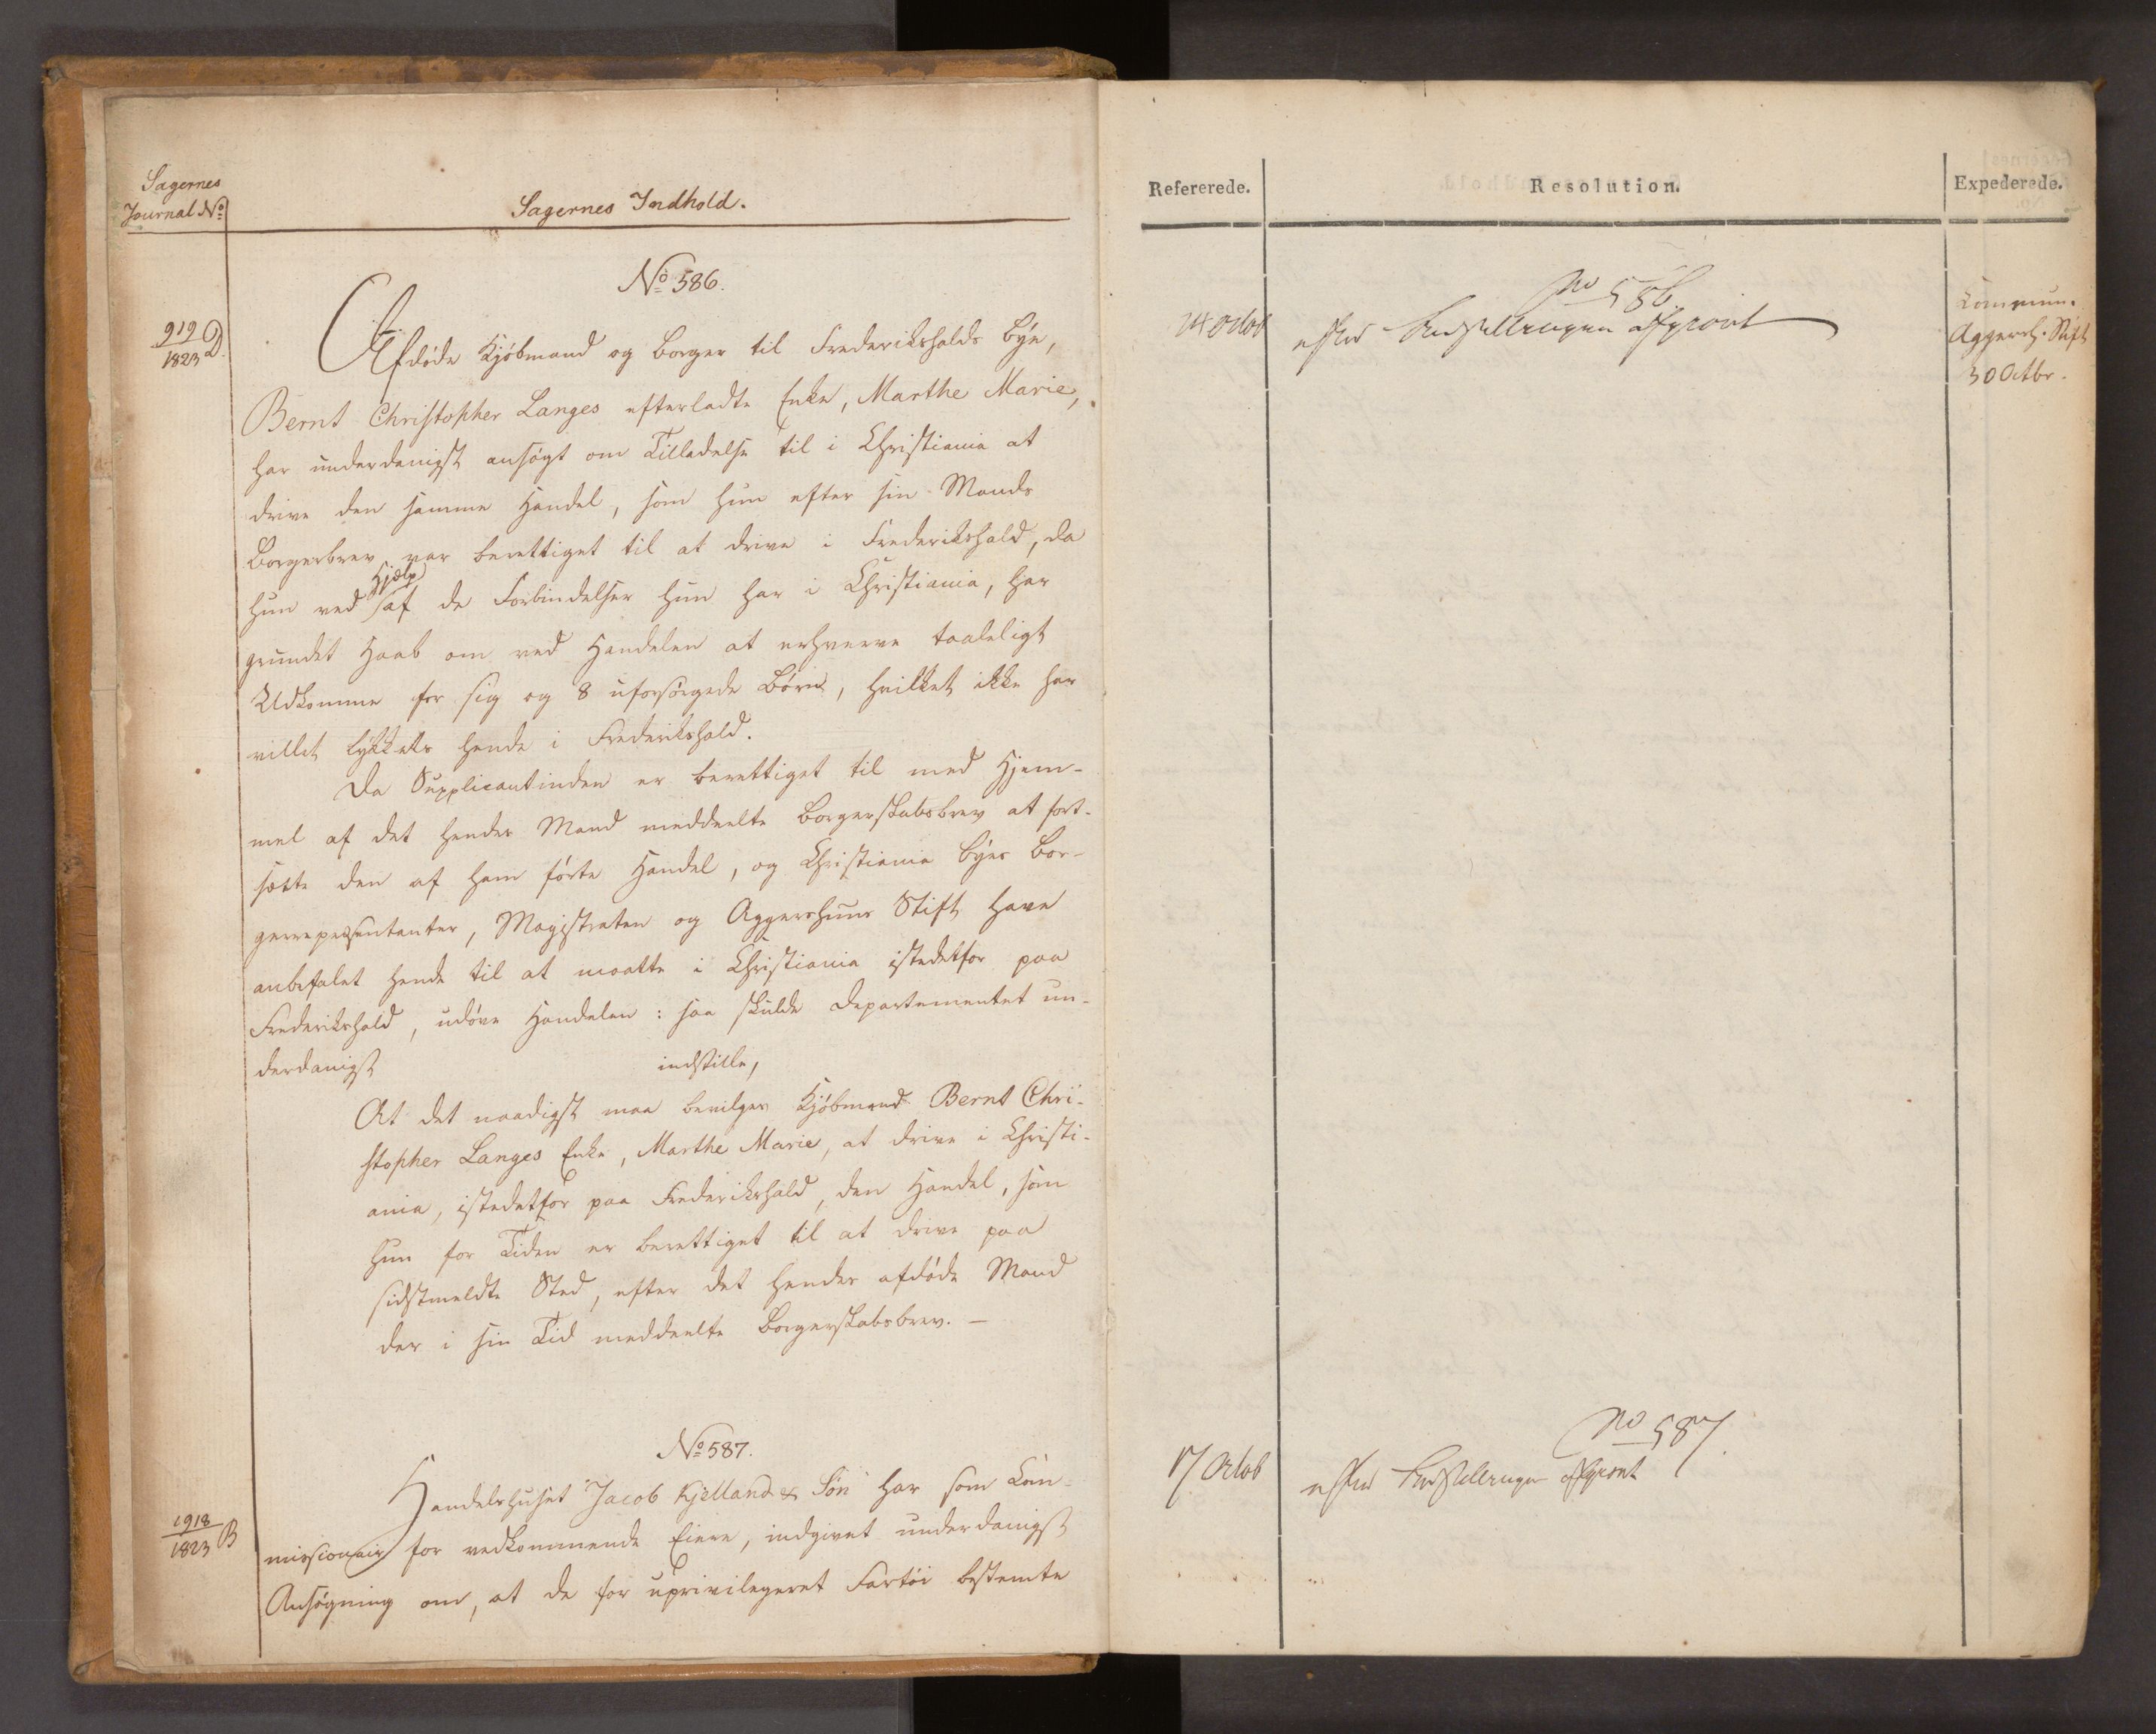 Sagernes
Journal No
Sagernes Indhold.
No 586.
919 D.
1823
Afdøde Kjøbmand og Borger til Frederikshalds Bye,
Bernt Christopher Langes efterladte Enke, Marthe Marie,
har underdanigst ansøgt om Tilladelse til i Christiania at
drive den samme Handel, som hun efter sin Mands
Borgerbrev var berettiget til at drive i Frederikshald, da
hun ved Hjelp af de Forbindelser hun har i Christiania, har
grundet Haab om ved Handelen at erhverve taaleligt
Udkomme for sig og 8 uforsørgede Børn, hvilket ikke har
villet lykkets hende i Frederikshald.
Da Supplicantinden er berettiget til med Hjem-
mel af det hendes Mand meddeelte Borgerskabsbrev at fort-
sætte den af ham førte Handel, og Christiania Byes Bor-
gerrepresentanter, Magistraten og Aggershuus Stift have
anbefalet hende til at maatte i Christiania istedetfor paa
Frederikshald, udøve Handelen: saa skulde Departementet un-
derdanigst indstille,
At det naadigst maa bevilges Kjøbmand Bernt Chri-
stopher Langes Enke, Marthe Marie, at drive i Christi-
ania, istedetfor paa Frederikshald, den Handel, som
hun for Tiden er berettiget til at drive paa
sidstmeldte Sted, efter det hendes afdøde Mand
der i sin Tid meddeelte Borgerskabsbrev. —
No 587.
1918 B
1823
Handelshuset Jacob Kjelland & Søn har som Com-
missionair for vedkommende Eiere, indgivet underdanigst
Ansøgning om, at de for uprivilegeret Fartøi bestemte
Refererede.
Resolution.
Expederede.
24 Octob
No 586
efter Indstillingen afgjort
Commun.
Aggersh. Stift
30 Octbr.
17 Octob
No 587.
efter Indstillingen afgjort